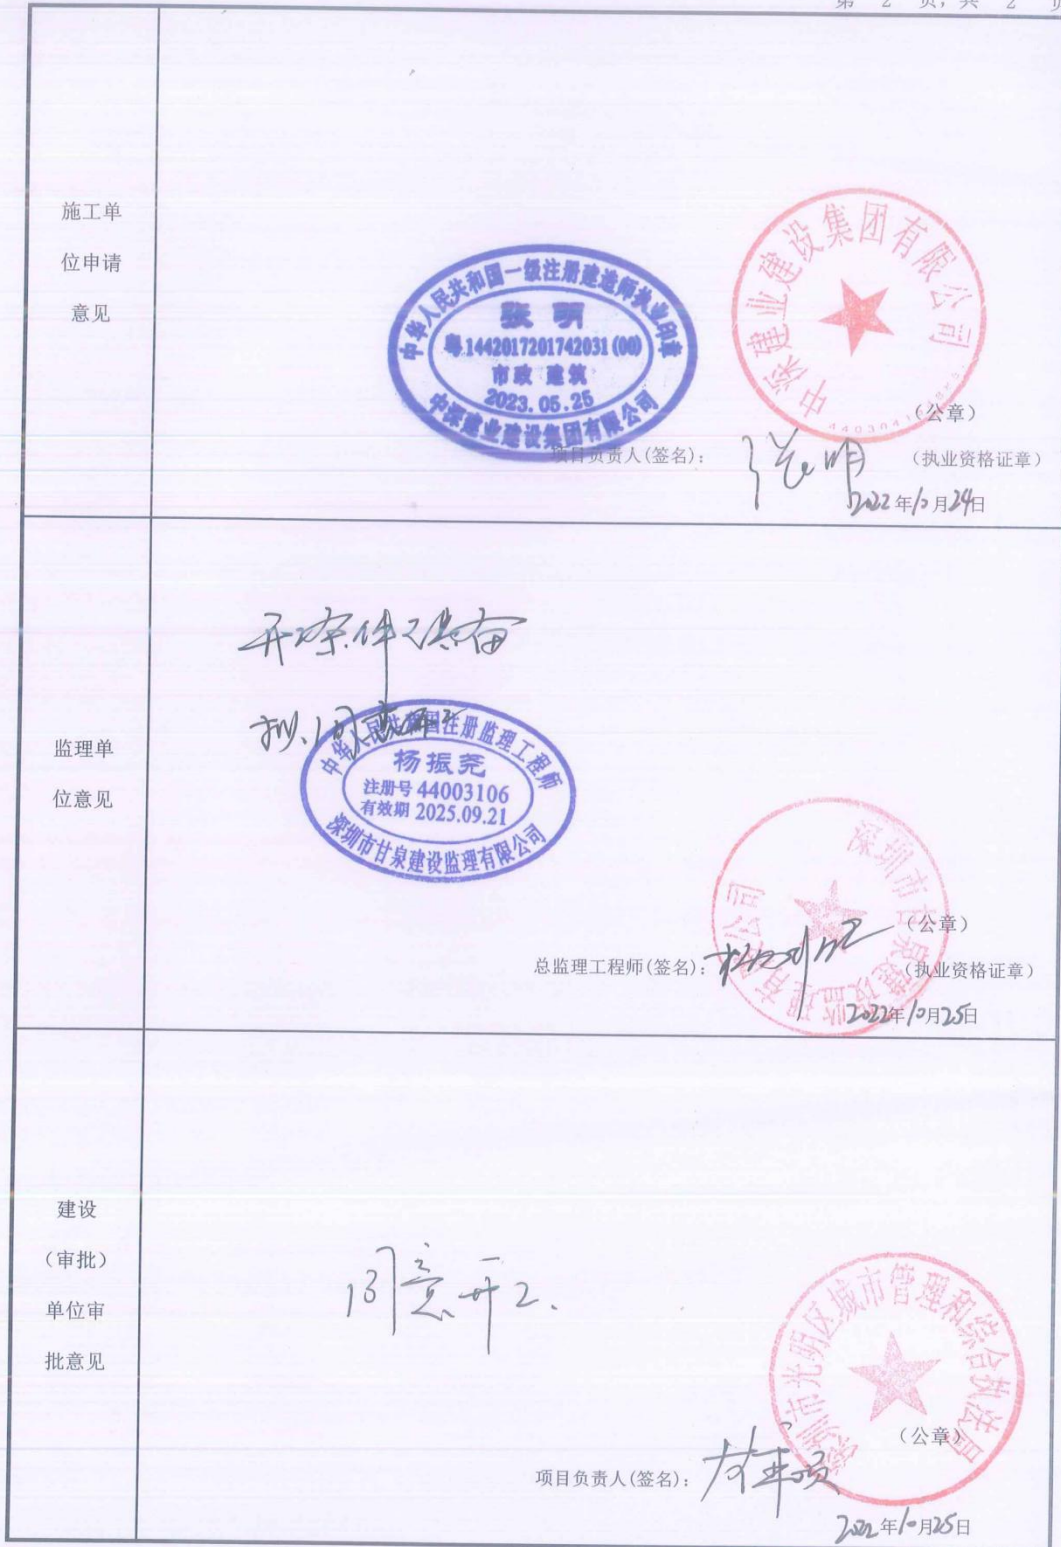 第 2 页,共 2 页
施工单
位申请
意见
中华人民共和国一级注册建造师执业印章
张明
粤1442017201742031(00)
市政 建筑
2023.05.25
中深建业建设集团有限公司
中深建业建设集团有限公司
(公章)
项目负责人(签名):
张明
(执业资格证章)
2022年10月24日
监理单
位意见
开工条件已具备
拟同意开工
中华人民共和国注册监理工程师
杨振尧
注册号 44003106
有效期 2025.09.21
深圳市甘泉建设监理有限公司
深圳市甘泉建设监理有限公司
(公章)
总监理工程师(签名):
(执业资格证章)
2022年10月25日
建设
(审批)
单位审
批意见
同意开工.
深圳市光明区城市管理和综合执法局
(公章)
项目负责人(签名):
2022年10月25日